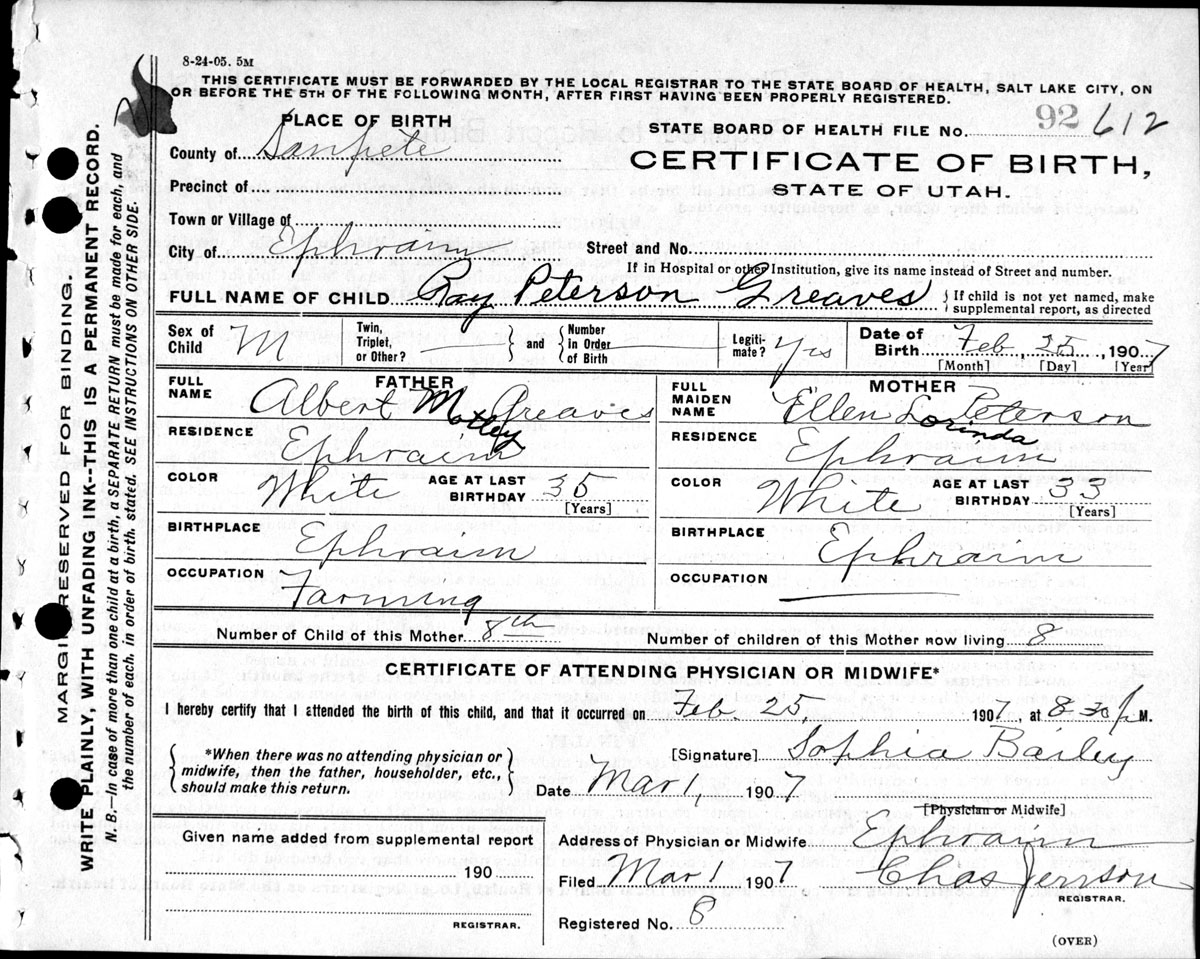 8-24-05. 5M
THIS CERTIFICATE MUST BE FORWARDED BY THE LOCAL REGISTRAR TO THE STATE BOARD OF HEALTH, SALT LAKE CITY, ON
OR BEFORE THE 5TH OF THE FOLLOWING MONTH, AFTER FIRST HAVING BEEN PROPERLY REGISTERED.
PLACE OF BIRTH
STATE BOARD OF HEALTH FILE NO. 92 612
County of Sanpete
CERTIFICATE OF BIRTH,
STATE OF UTAH.
Precinct of
Town or Village of
City of Ephraim Street and No.
If in Hospital or other Institution, give its name instead of Street and number.
FULL NAME OF CHILD Ray Peterson Greaves { If child is not yet named, make
supplemental report, as directed
Sex of Child M Twin, Triplet, or Other? and Number in Order of Birth Legiti-mate? Yes Date of Birth Feb. 25, 1907
[Month] [Day] [Year]
FATHER
FULL NAME Albert Moxley Greaves
RESIDENCE Ephraim
COLOR White AGE AT LAST BIRTHDAY 35
[Years]
BIRTHPLACE Ephraim
OCCUPATION Farming
MOTHER
FULL MAIDEN NAME Ellen Lorinda Peterson
RESIDENCE Ephraim
COLOR White AGE AT LAST BIRTHDAY 33
[Years]
BIRTHPLACE Ephraim
OCCUPATION
Number of Child of this Mother 8th Number of children of this Mother now living 8
CERTIFICATE OF ATTENDING PHYSICIAN OR MIDWIFE*
I hereby certify that I attended the birth of this child, and that it occurred on Feb. 25, 1907, at 8-30 P M.
*When there was no attending physician or
midwife, then the father, householder, etc.,
should make this return.
[Signature] Sophia Bailey
Date Mar 1, 1907
[Physician or Midwife]
Address of Physician or Midwife Ephraim
Filed Mar 1 1907 Chas Jenson
REGISTRAR.
Registered No. 8
Given name added from supplemental report
190
REGISTRAR.
(OVER)
MARGIN RESERVED FOR BINDING.
WRITE PLAINLY, WITH UNFADING INK--THIS IS A PERMANENT RECORD.
N. B.—In case of more than one child at a birth, a SEPARATE RETURN must be made for each, and
the number of each, in order of birth, stated. SEE INSTRUCTIONS ON OTHER SIDE.